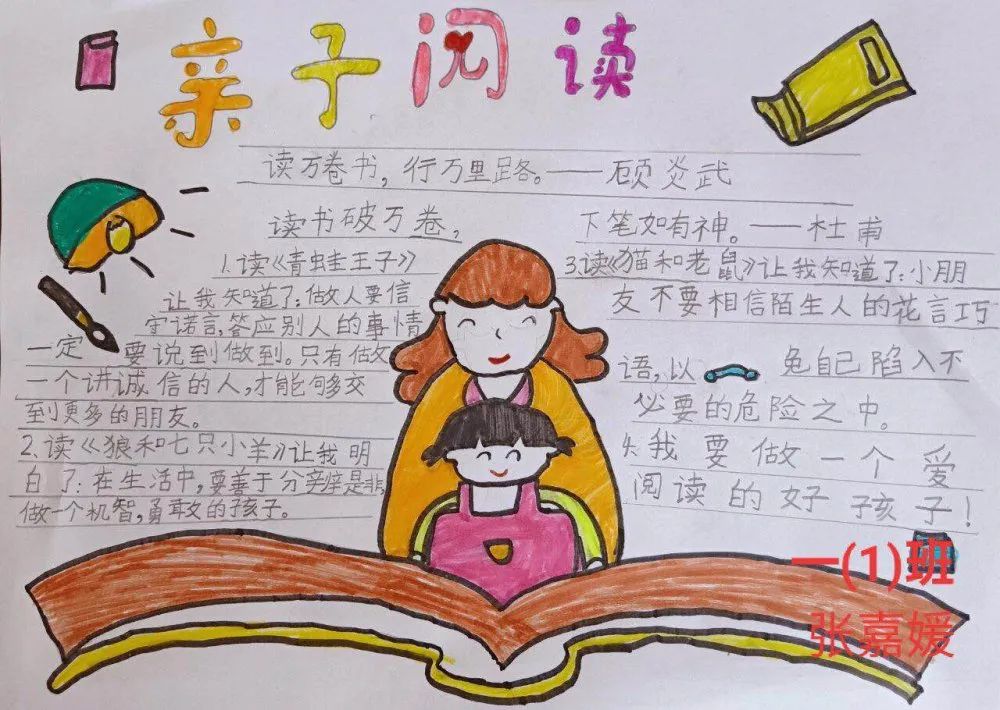 亲子阅读
读万卷书，行万里路。——顾炎武
读书破万卷，下笔如有神。——杜甫
1.读《青蛙王子》
让我知道了：做人要信
守诺言，答应别人的事情
一定要说到做到。只有做
一个讲诚信的人，才能够交
到更多的朋友。
2.读《狼和七只小羊》让我明
白了：在生活中，要善于分辨是非
做一个机智，勇敢的孩子。
3.读《猫和老鼠》让我知道了：小朋
友不要相信陌生人的花言巧
语，以免自己陷入不
必要的危险之中。
4.我要做一个爱
阅读的好孩子！
一(1)班
张嘉媛